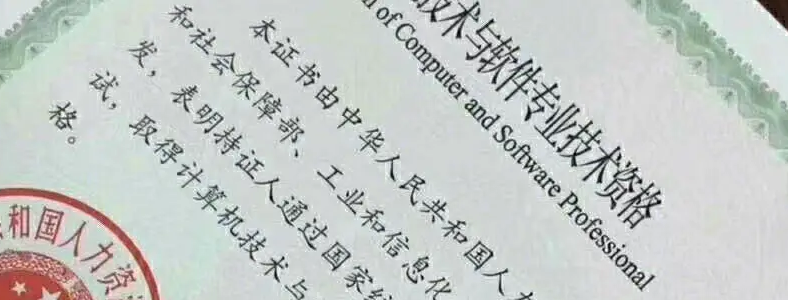 技术与软件专业技术资格
of Computer and Software Professional
本证书由中华人民共和国人力
和社会保障部、工业和信息化
发，表明持证人通过国家统
试，取得计算机技术与
格。
和国人力资